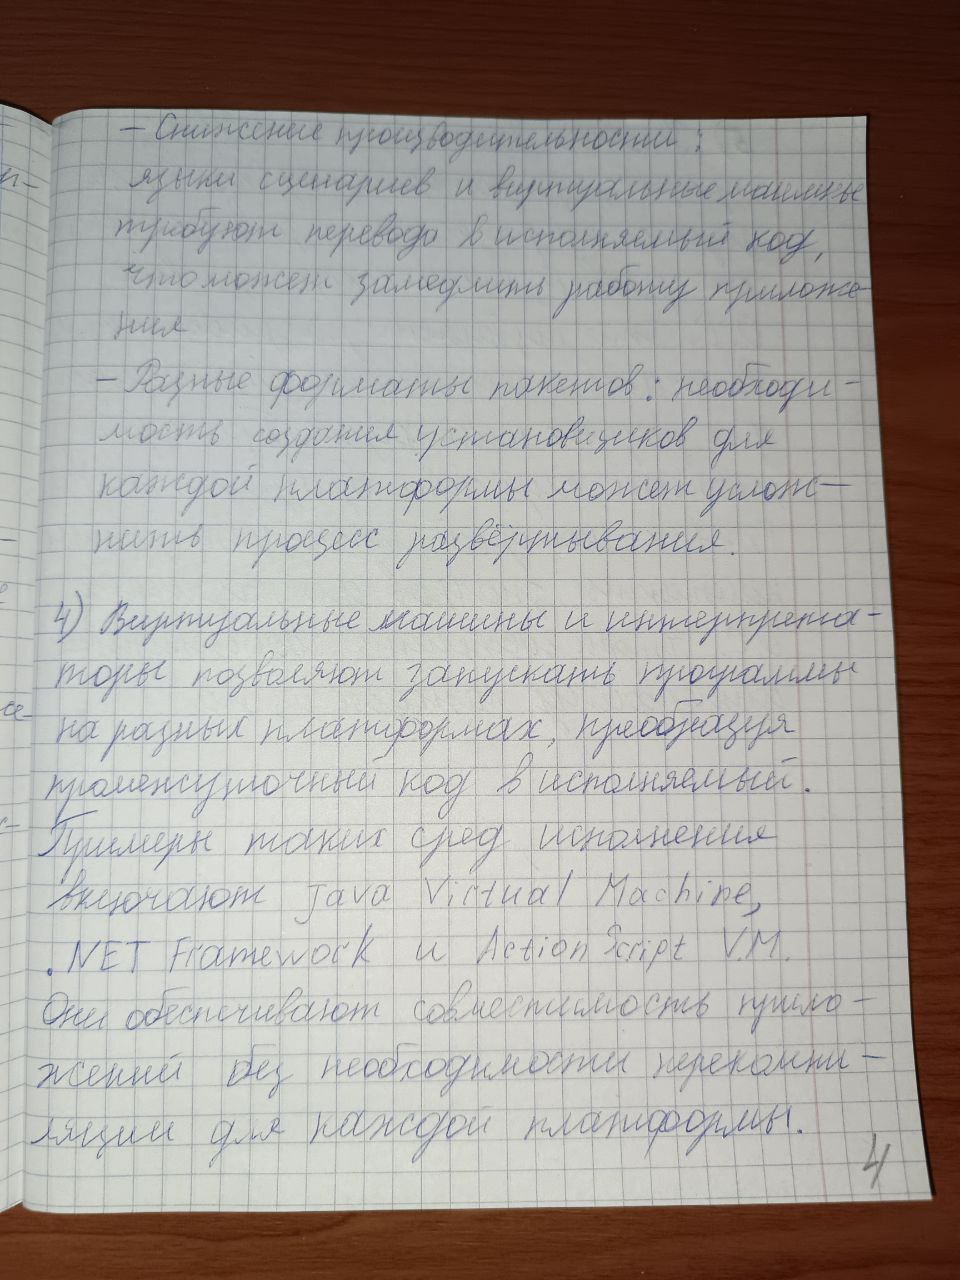 - Снижение производительности:
языки сценариев и виртуальные машины
требуют перевода в исполняемый код,
что может замедлить работу приложе-
ния
- Разные форматы пакетов: необходи-
мость создания установщиков для
каждой платформы может услож-
нить процесс развёртывания.
4) Виртуальные машины и интерпрета-
торы позволяют запускать программы
на разных платформах, преобразуя
промежуточный код в исполняемый.
Примеры таких сред исполнения
включают Java Virtual Machine,
.NET Framework и ActionScript V.M.
Они обеспечивают совместимость прило-
жений без необходимости перекомпи-
ляции для каждой платформы.
4